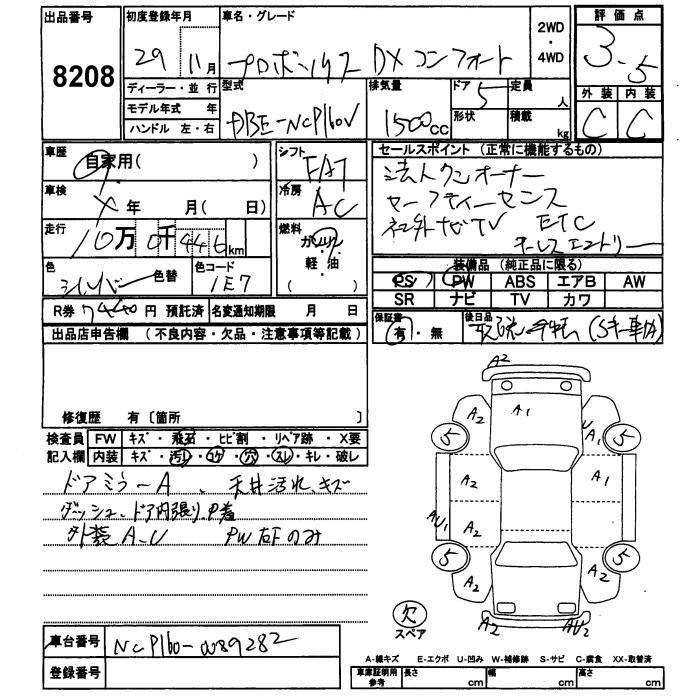 出品番号
8208
初度登録年月
29 11月
車名・グレード
プロボックス DXコンフォート
2WD
・
4WD
評価点
3.5
外装 内装
C C
ディーラー・並行
モデル年式 年
ハンドル 左・右
型式
DBE-NCP160V
排気量
1500cc
ドア 5
形状
定員 人
積載 kg
車歴
自家用( )
車検
年 月( 日)
走行
10万0千446km
色
シルバー 色替
色コード
1E7
シフト
FAT
冷房
AC
燃料
ガソリン
軽・油
( )
セールスポイント (正常に機能するもの)
法人ワンオーナー
セーフティーセンス
社外ナビTV ETC
キーレスエントリー
装備品 (純正品に限る)
PS PW ABS エアB AW
SR ナビ TV カワ
R券 7440円 預託済 名変通知期限 月 日
保証書
有・無
後日品
出品店申告欄 (不良内容・欠品・注意事項等記載)
修復歴 有〔箇所 〕
検査員
記入欄
FW キズ・飛石・ヒビ割・リペア跡・X要
内装 キズ・汚レ・コゲ・穴・スレ・キレ・破レ
ドアミラーA、天井汚れ、キズ
ダッシュ、ドア内張り
外装 A-U PW左Fのみ
A2
A2 A1 U A1
5 5
A2 A1
AU1 A2
5 5
A2 A2
A2 AU2
欠
スペア
車台番号 NCP160-0089282
登録番号
A-線キズ E-エクボ U-凹み W-補修跡 S-サビ C-腐食 XX-取替済
車庫証明用
参考
長さ cm 幅 cm 高さ cm